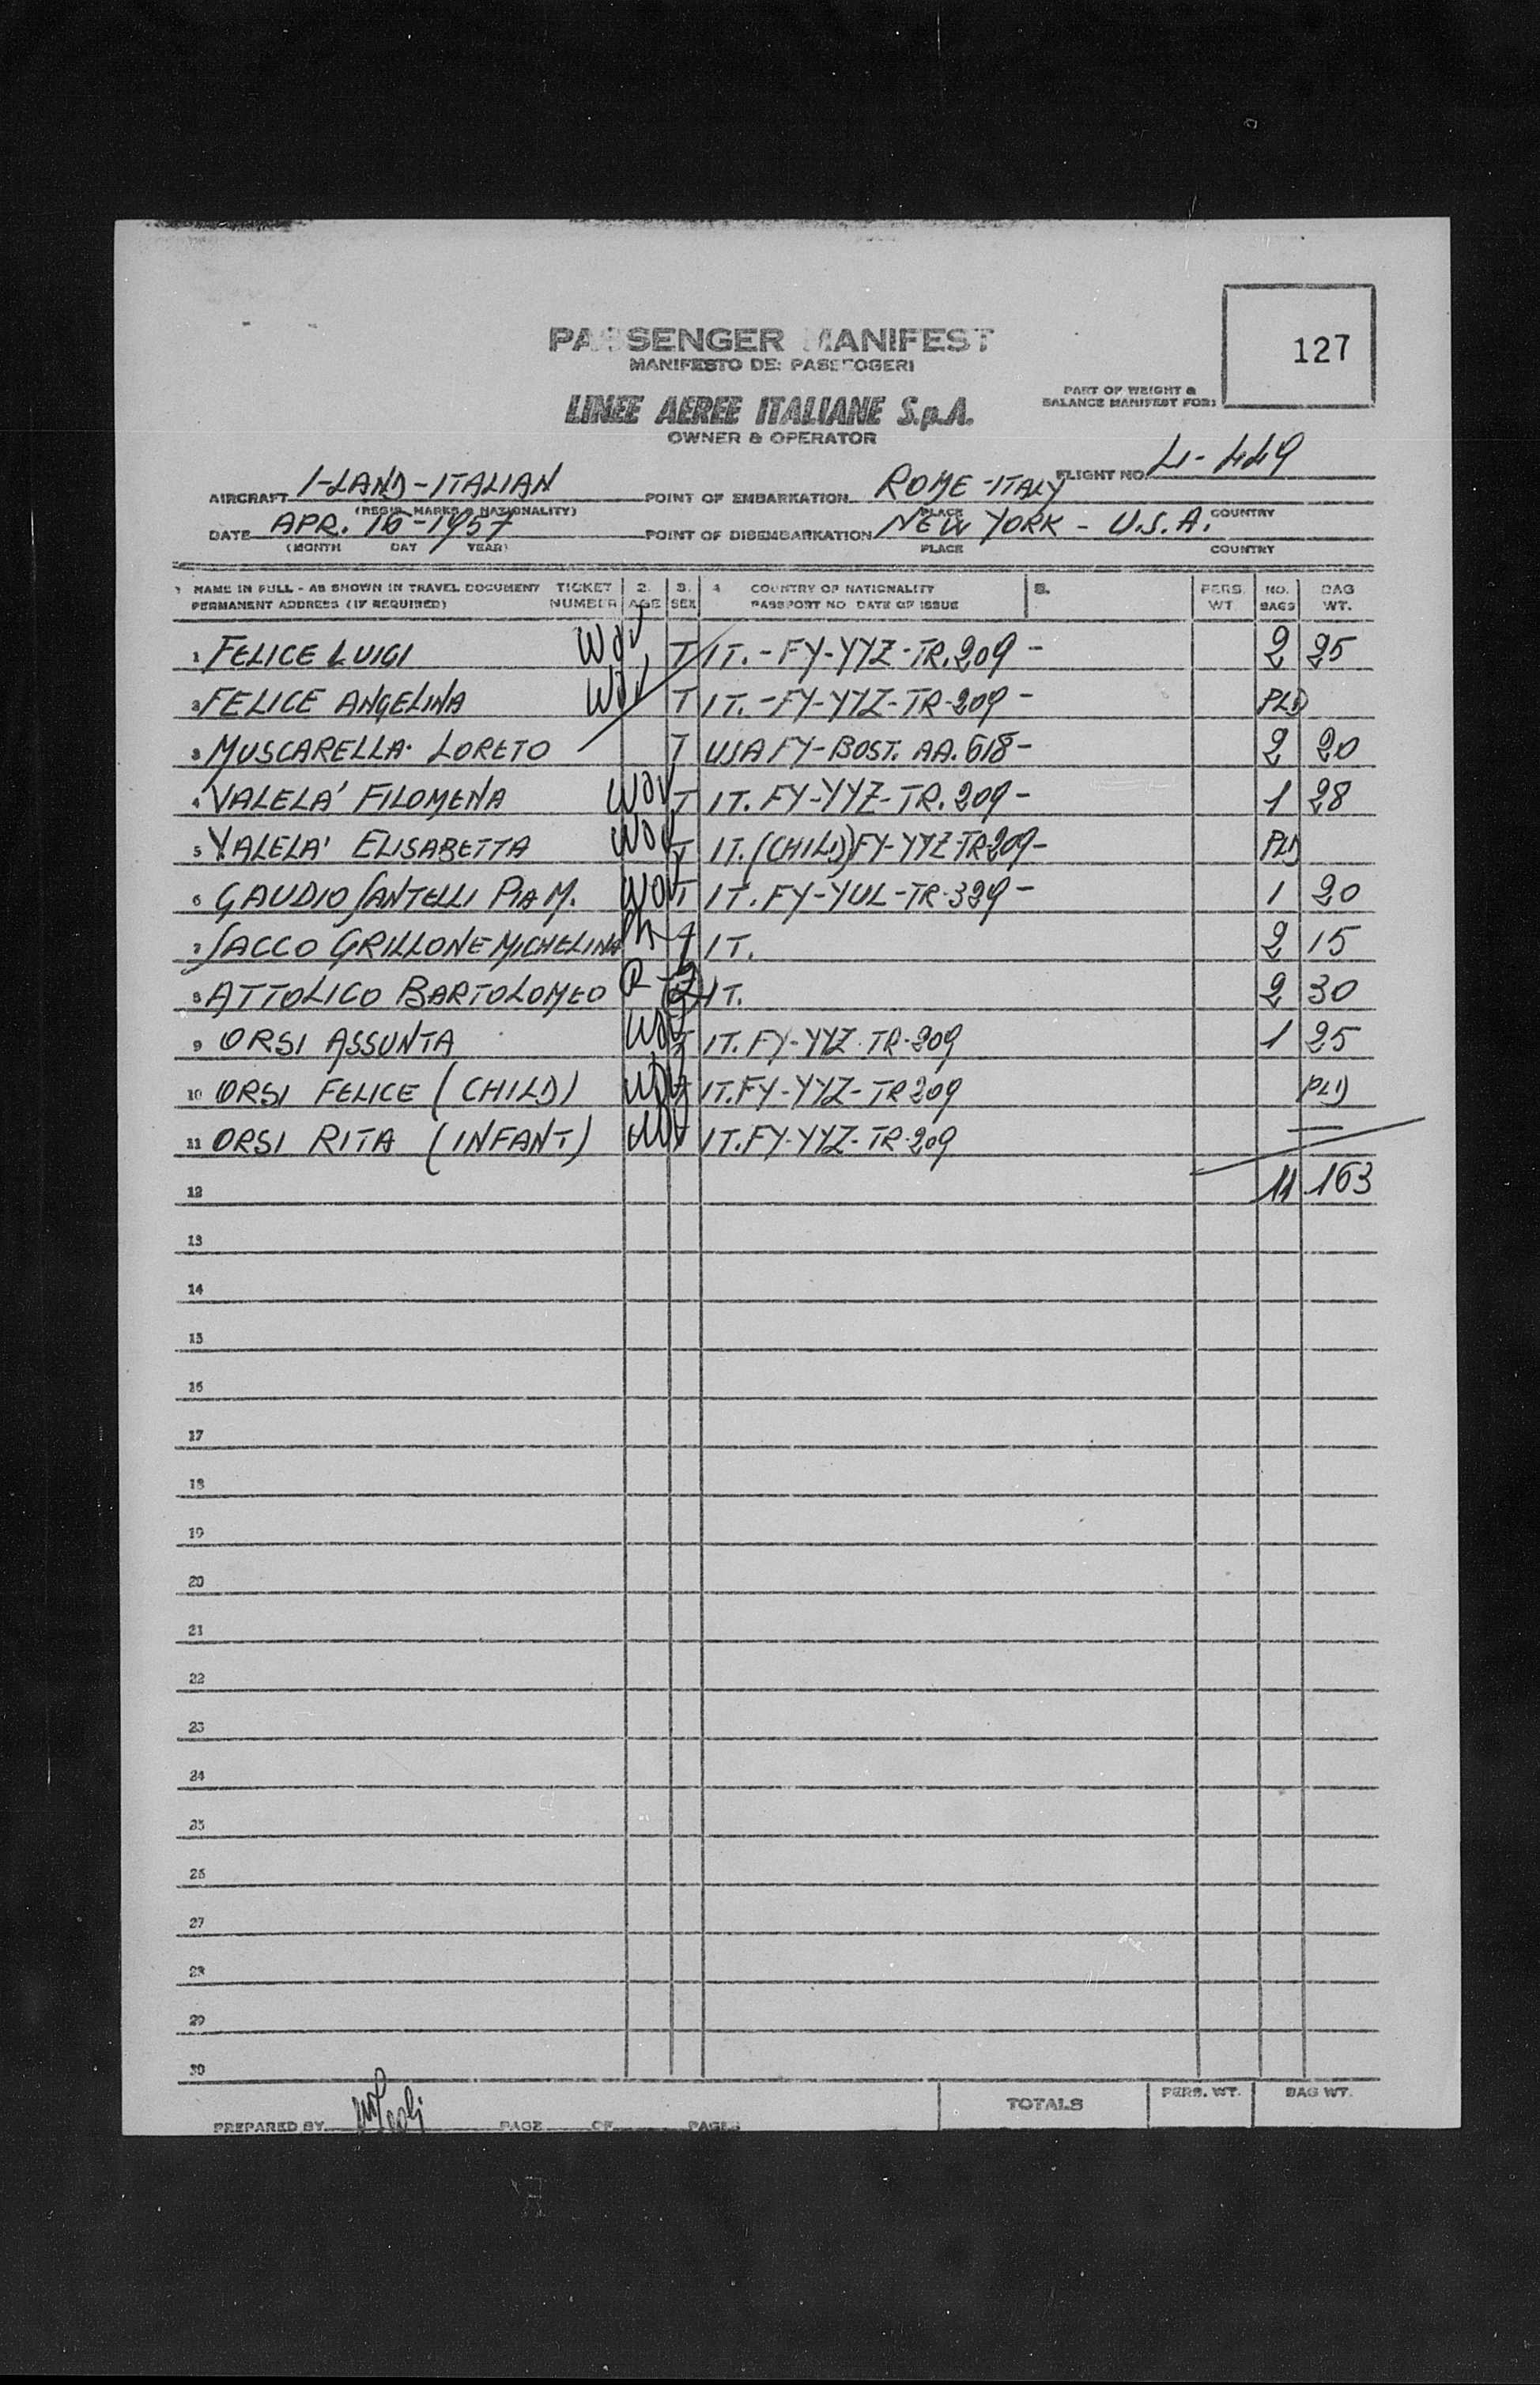 127
PASSENGER MANIFEST
MANIFESTO DEI PASSEGGERI
LINEE AEREE ITALIANE S.p.A.
OWNER & OPERATOR
PART OF WEIGHT &
BALANCE MANIFEST FOR:
FLIGHT NO. LI-449
AIRCRAFT I-LAND-ITALIAN POINT OF EMBARKATION ROME-ITALY
(REGIS. MARKS & NATIONALITY) PLACE COUNTRY
DATE APR. 16-1957 POINT OF DISEMBARKATION NEW YORK - U.S.A.
(MONTH DAY YEAR) PLACE COUNTRY
1 NAME IN FULL - AS SHOWN IN TRAVEL DOCUMENT TICKET 2. 3. 4 COUNTRY OF NATIONALITY 5. PERS. NO. BAG
PERMANENT ADDRESS (IF REQUIRED) NUMBER AGE SEX PASSPORT NO DATE OF ISSUE WT BAGS WT.
1 FELICE LUIGI Wov T IT. - FY-YYZ-TR.209 - 2 25
2 FELICE ANGELINA Wov T IT. - FY-YYZ-TR-209 - PLD
3 MUSCARELLA LORETO T USA FY-BOST. AA.618 - 2 20
4 VALELA' FILOMENA Wov T IT. FY-YYZ-TR.209 - 1 28
5 VALELA' ELISABETTA Wov T IT. (CHILD) FY-YYZ-TR-209 - PLD
6 GAUDIO SANTELLI PIA M. Wov T IT. FY-YUL-TR-329 - 1 20
7 SACCO GRILLONE MICHELINA IT. 2 15
8 ATTOLICO BARTOLOMEO IT. 2 30
9 ORSI ASSUNTA Wov T IT. FY-YYZ-TR-209 1 25
10 ORSI FELICE (CHILD) IT. FY-YYZ-TR 209 PLD
11 ORSI RITA (INFANT) IT. FY-YYZ-TR-209 —
12 11 163
13
14
15
16
17
18
19
20
21
22
23
24
25
26
27
28
29
30
PREPARED BY PAGE OF PAGES TOTALS PERS. WT. BAG WT.